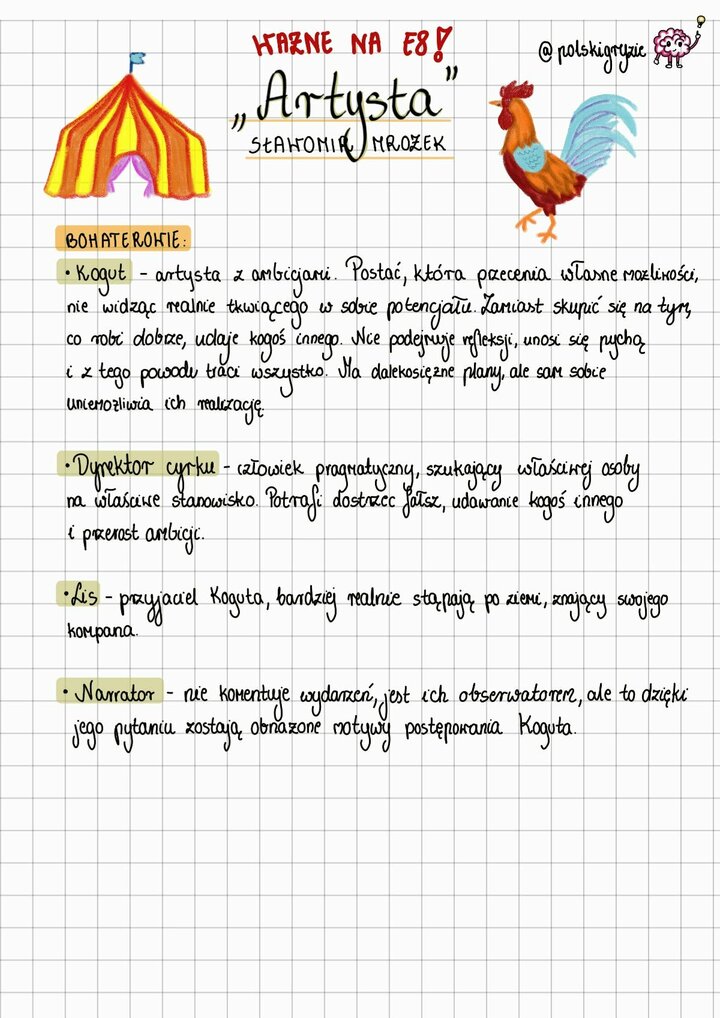 WAŻNE NA E8!
@polskigryzie
„Artysta”
SŁAWOMIR MROŻEK
BOHATEROWIE:
• Kogut - artysta z ambicjami. Postać, która przecenia własne możliwości,
nie widząc realnie tkwiącego w sobie potencjału. Zamiast skupić się na tym,
co robi dobrze, udaje kogoś innego. Nie podejmuje refleksji, unosi się pychą
i z tego powodu traci wszystko. Ma dalekosiężne plany, ale sam sobie
uniemożliwia ich realizację.
• Dyrektor cyrku - człowiek pragmatyczny, szukający właściwej osoby
na właściwe stanowisko. Potrafi dostrzec fałsz, udawanie kogoś innego
i przerost ambicji.
• Lis - przyjaciel Koguta, bardziej realnie stąpają po ziemi, znający swojego
kompana.
• Narrator - nie komentuje wydarzeń, jest ich obserwatorem, ale to dzięki
jego pytaniu zostają obnażone motywy postępowania Koguta.